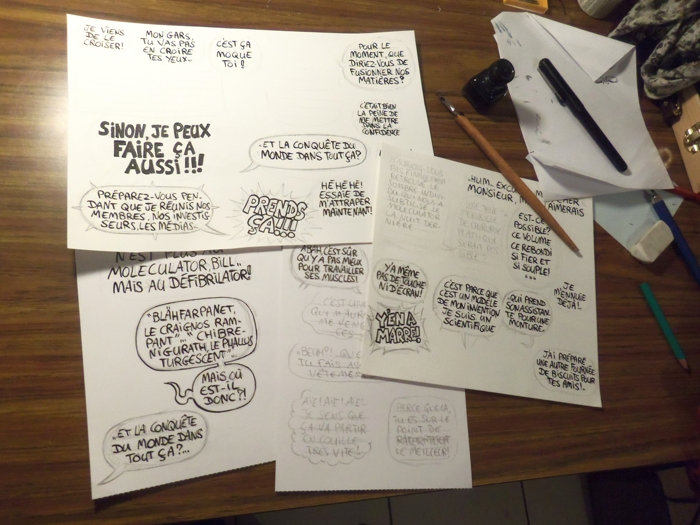 JE VIENS
DE LE
CROISER!
MON GARS,
TU VAS PAS
EN CROIRE
TES YEUX..
C'EST ÇA
MOQUE
TOI!
POUR LE
MOMENT, QUE
DIRIEZ-VOUS DE
FUSIONNER NOS
MATIÈRES?
C'ÉTAIT BIEN
LA PEINE DE
ME METTRE
DANS LA
CONFIDENCE
SINON, JE PEUX
FAIRE ÇA
AUSSI!!!
..ET LA CONQUÊTE DU
MONDE DANS TOUT ÇA?
PRÉPAREZ-VOUS PEN-
DANT QUE JE RÉUNIS NOS
MEMBRES, NOS INVESTIS
SEURS, LES MÉDIAS..
PRENDS
ÇA!!!
HÉ HÉ HÉ!
ESSAIE DE
M'ATTRAPER
MAINTENANT!
N'EST PLUS AU
MOLECULATOR, BILL..
MAIS AU DÉFIBRILATOR!
"BLÂHFARPANET,
LE CRAIGNOS RAM-
PANT"... "CHIBRE-
NIGURATH, LE PHALLUS
TURGESCENT"...
MAIS OÙ
EST-IL
DONC?!
..ET LA CONQUÊTE
DU MONDE DANS
TOUT ÇA?...
ABAH C'EST SÛR
QU'Y A PAS MIEUX
POUR TRAVAILLER
SES MUSCLES!
AÏE! AÏE! AÏE!
JE SENS QUE
ÇA VA PARTIR
EN COUILLE
TRÈS VITE!
PARCE QUE LÀ,
TU ES SUR LE
POINT DE
LE MEILLEUR!
..HUM, EXCU
MONSIEUR, M
AIMERAIS
EST-CE
POSSIBLE?
CE VOLUME
CE REBONDI
SI FIER ET
SI SOUPLE!
...
Y'A MÊME
PAS DE TOUCHE
NI D'ÉCRAN!
Y'EN A
MARRE!!
C'EST PARCE QUE
C'EST UN MODÈLE
DE MON INVENTION
JE SUIS UN
SCIENTIFIQUE
..QUI PREND
SON ASSISTAN
TE POUR UNE
MONTURE..
JE
M'ENNUIE
DÉJÀ!
J'AI PRÉPARÉ
UNE AUTRE FOURNÉE
DE BISCUITS POUR
TES AMIS!..